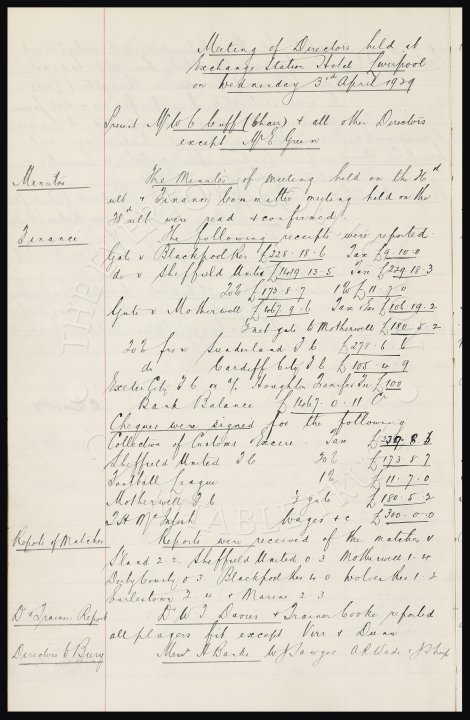 Meeting of Directors held at
Exchange Station Hotel Liverpool
on Wednesday 3rd April 1929
Present Mr W C Cuff (Chair) & all other Directors
except Mr E Green
Minutes
The Minutes of meeting held on the 26th
ult & Finance Committee meeting held on the
ult were read & confirmed
Finance
The following receipts were reported
Gate v Blackpool Res £228.18.6 Tax £9.10.0
do v Sheffield United £1419.13.5 Tax £229.18.3
20% £173.8.7 1% £11.7.0
Gate v Motherwell £467.9.6 Tax £106.19.2
½ net gate to Motherwell £180.5.2
20% from Sunderland F C £278.6.6
do Cardiff City F C £105.4.9
Exeter City F C on a/c Houghton Transfer Fee £100
Bank Balance £1467.0.11 Cr
Cheques were signed for the following
Collection of Customs & Excise Tax £239.8.3
Sheffield United F C 20% £173.8.7
Football League 1% £11.7.0
Motherwell F C ½ gate £180.5.2
T H McIntosh Wages &c £300.0.0
Reports of Matches
Reports were received of the matches v
S'land 2-2 Sheffield United 0-3 Motherwell 1-4
Derby County 0-3 Blackpool Res 4-0 Wolves Res 1-2
Earlestown 2-4 & Marine 2-3
Dr & Trainer Report
Dr W J Davies & Trainer Cooke reported
all players fit except Virr & Dunn
Directors to Bury
Messrs A Banks W J Sawyer A R Wade & J Sharp